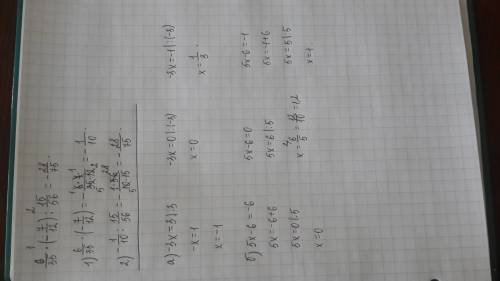 6/35 · (-7/12) : 15/56 = -28/75.
1) 6/35 · (-7/12) = -6·7/35·12 = -1/10
2) -1/10 : 15/56 = -1·56/10·15 = -28/75.
а) -3x = 3 |:3
-x = 1
x = -1
-3x = 0 |:(-3)
x = 0
-3x = -1 |:(-3)
x = 1/3.
б) 5x-6 = -6
5x = -6+6
5x = 0 |:5
x = 0
5x-6 = 0
5x = 6 |:5
x = 6/5 = 12/10 = 12
5x-6 = -1
5x = -1+6
5x = 5 |:5
x = 1